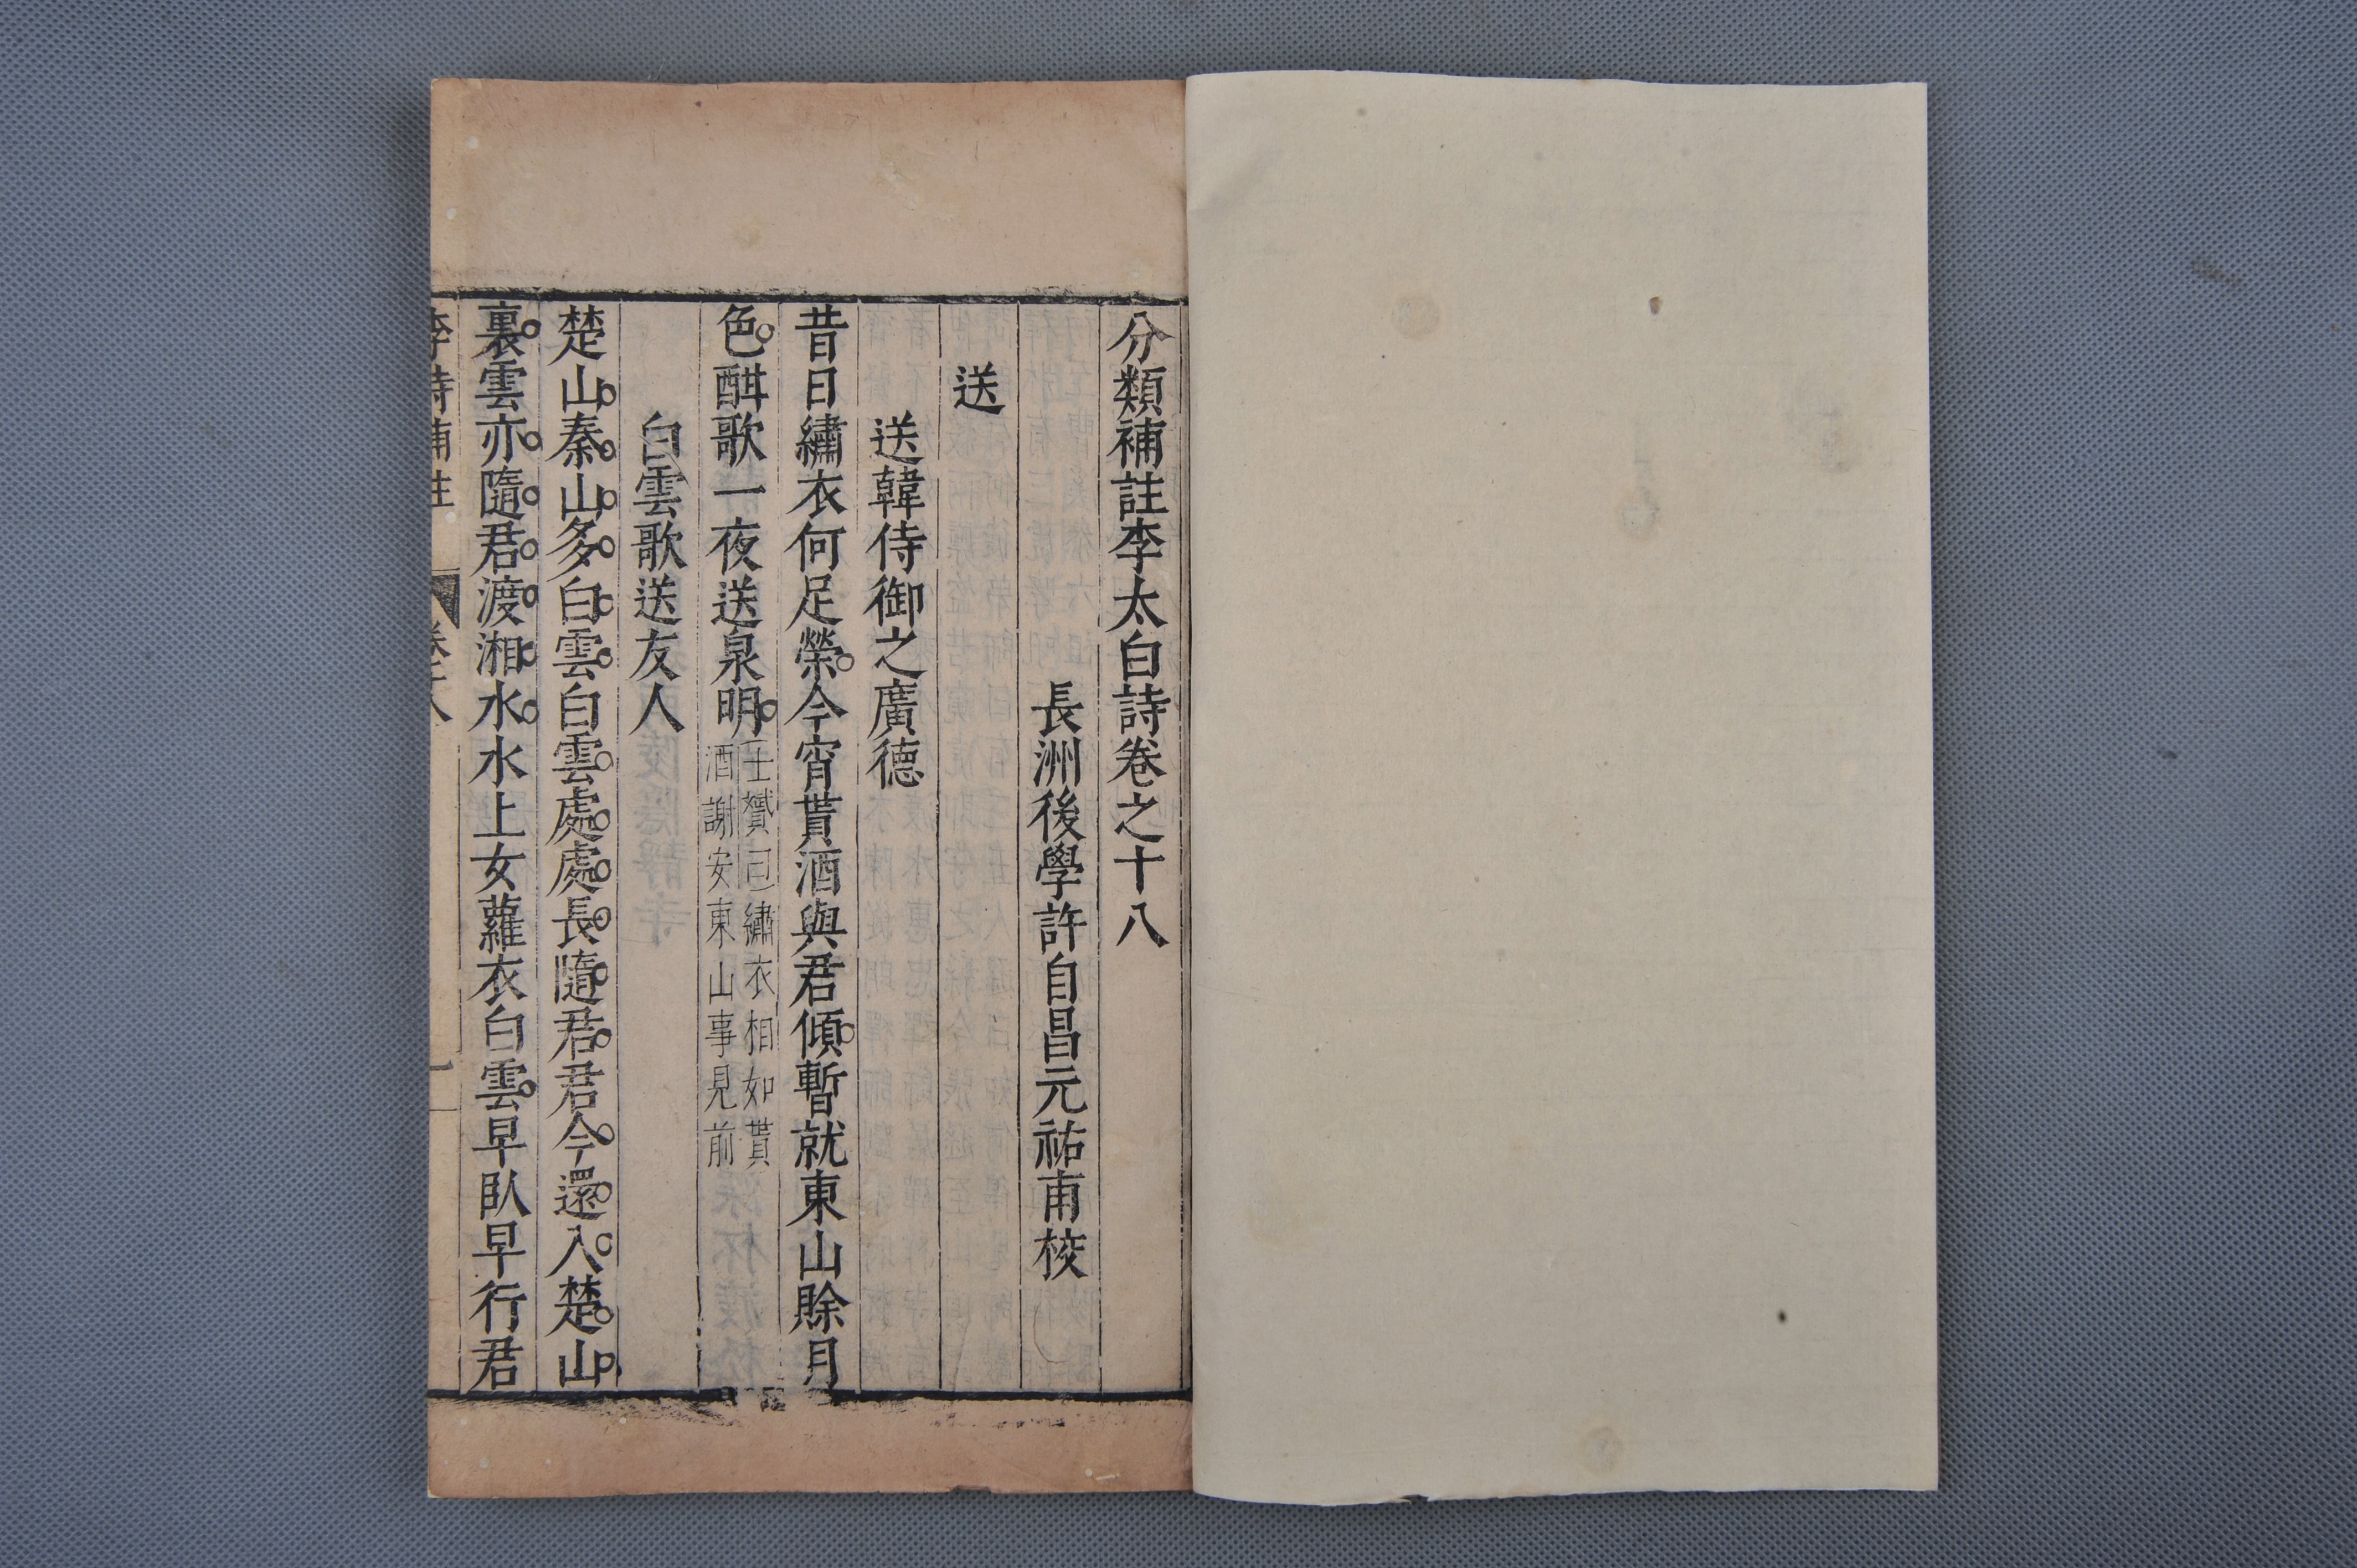 分類補註李太白詩卷之十八
長洲後學許自昌元祐甫校
送
送韓侍御之廣德
昔日繡衣何足榮今宵貰酒與君傾暫就東山賒月
色酣歌一夜送泉明
王贇曰繡衣相如貰
酒謝安東山事見前
白雲歌送友人
楚山秦山多白雲白雲處處長隨君君今還入楚山
裏雲亦隨君渡湘水水上女蘿衣白雲早臥早行君
李詩補註 卷十八 一